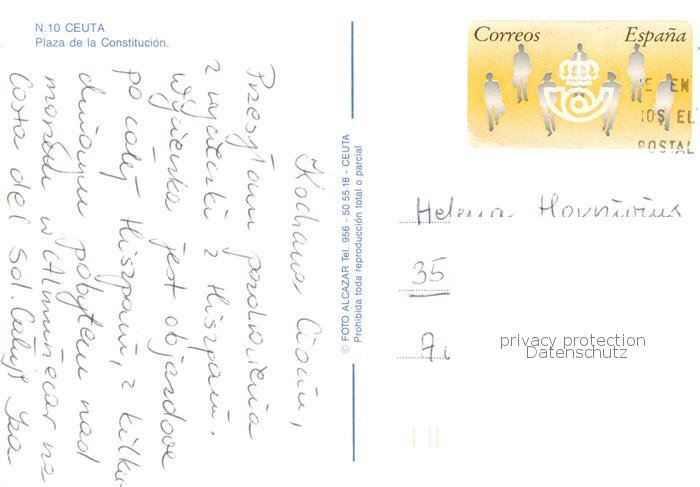 N.10 CEUTA
Plaza de la Constitución.
Kochana Ciociu,
Przesyłam pozdrowienia
z wycieczki z Hiszpanii.
Wycieczka jest objazdowa
po całej Hiszpanii, z kilku
dniowym pobytem nad
morzem w Almuñecar na
Costa del Sol. Całuję Iza
© FOTO ALCAZAR Tel. 956 - 50 55 18 - CEUTA
Prohibida toda reproducción total o parcial
Correos España
EN
IOS EL
POSTAL
Helena
35
privacy protection
Datenschutz